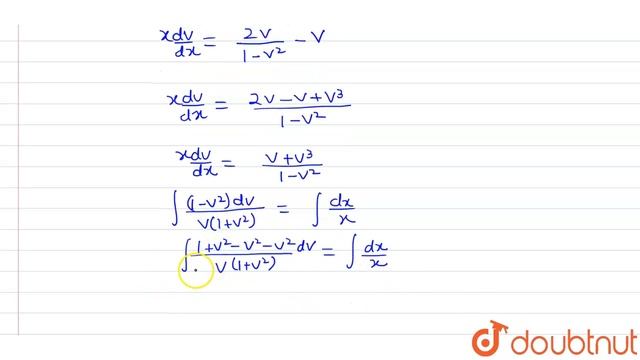 x dv/dx = 2v/(1-v²) - v
x dv/dx = (2v-v+v³)/(1-v²)
x dv/dx = (v+v³)/(1-v²)
∫ (1-v²)dv/(v(1+v²)) = ∫ dx/x
∫ (1+v²-v²-v²)/(v(1+v²)) dv = ∫ dx/x
doubtnut